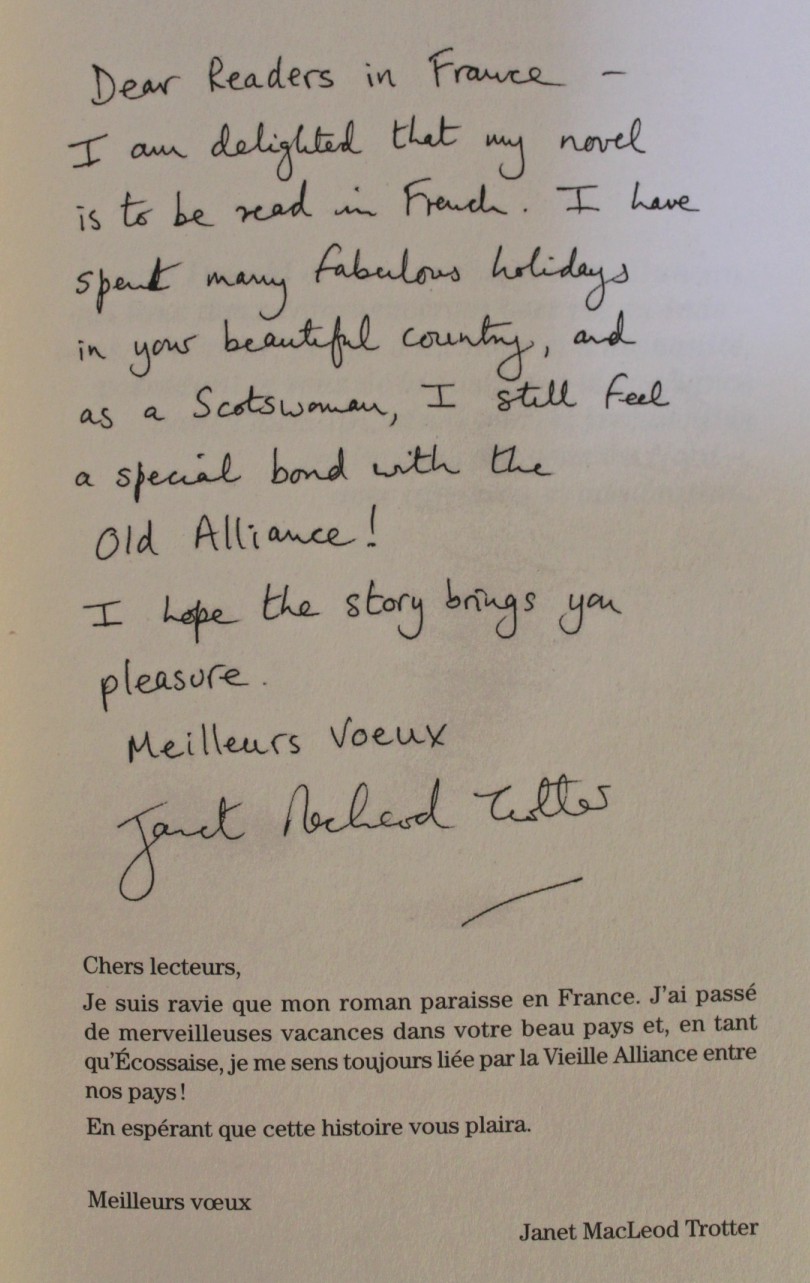 Dear Readers in France –
I am delighted that my novel
is to be read in French. I have
spent many fabulous holidays
in your beautiful country, and
as a Scotswoman, I still feel
a special bond with the
Old Alliance!
I hope the story brings you
pleasure.
Meilleurs Voeux
Janet MacLeod Trotter
Chers lecteurs,
Je suis ravie que mon roman paraisse en France. J'ai passé
de merveilleuses vacances dans votre beau pays et, en tant
qu'Écossaise, je me sens toujours liée par la Vieille Alliance entre
nos pays !
En espérant que cette histoire vous plaira.
Meilleurs vœux
Janet MacLeod Trotter